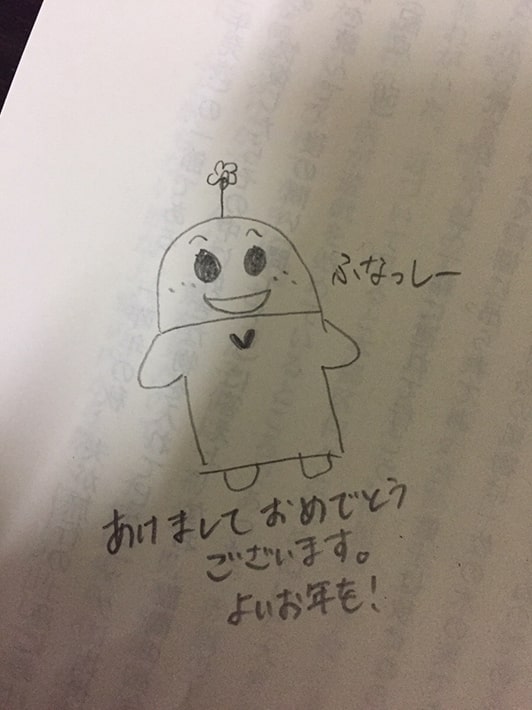 ふなっしー
あけましておめでとう
ございます。
よいお年を!